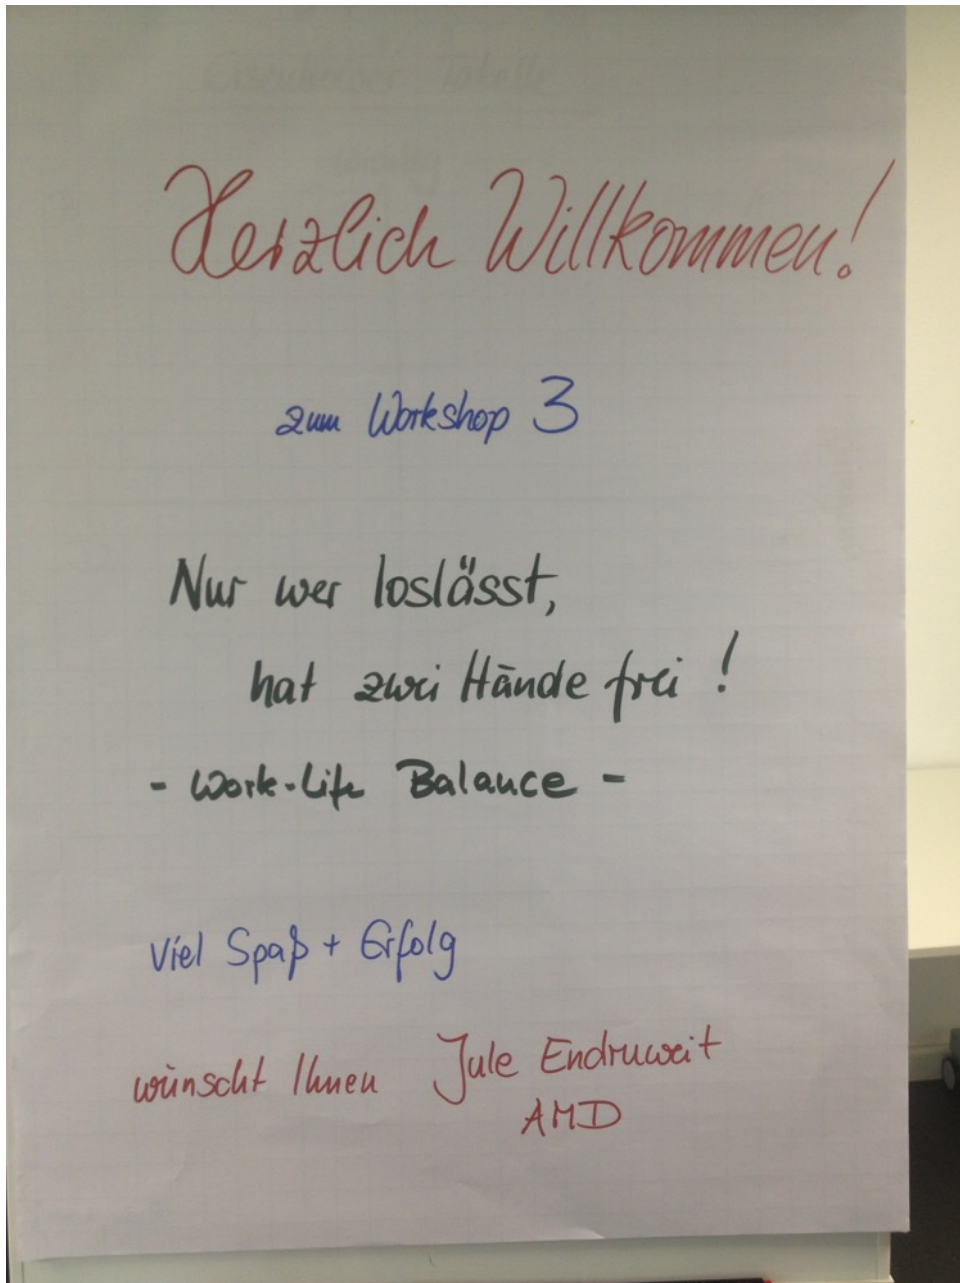 Eisenhower Tabelle
Herzlich Willkommen!
zum Workshop 3
Nur wer loslässt,
hat zwei Hände frei!
- Work-Life Balance -
Viel Spaß + Erfolg
wünscht Ihnen Jule Endruweit
AMD